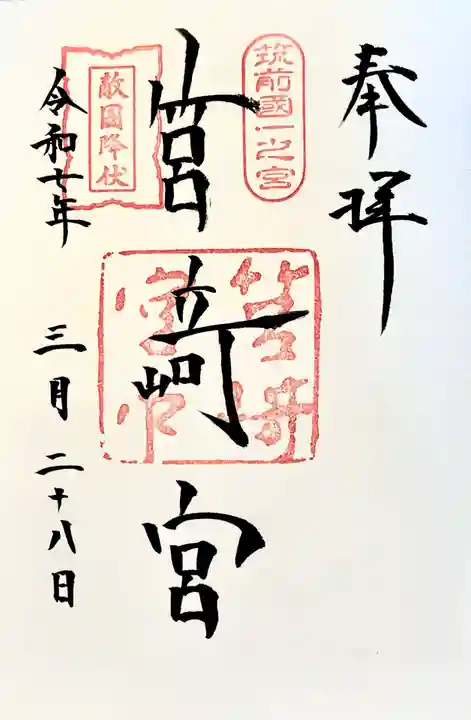 奉拝
筑前國一之宮
筥﨑宮
筥埼
宮印
敵國降伏
令和七年 三月二十八日